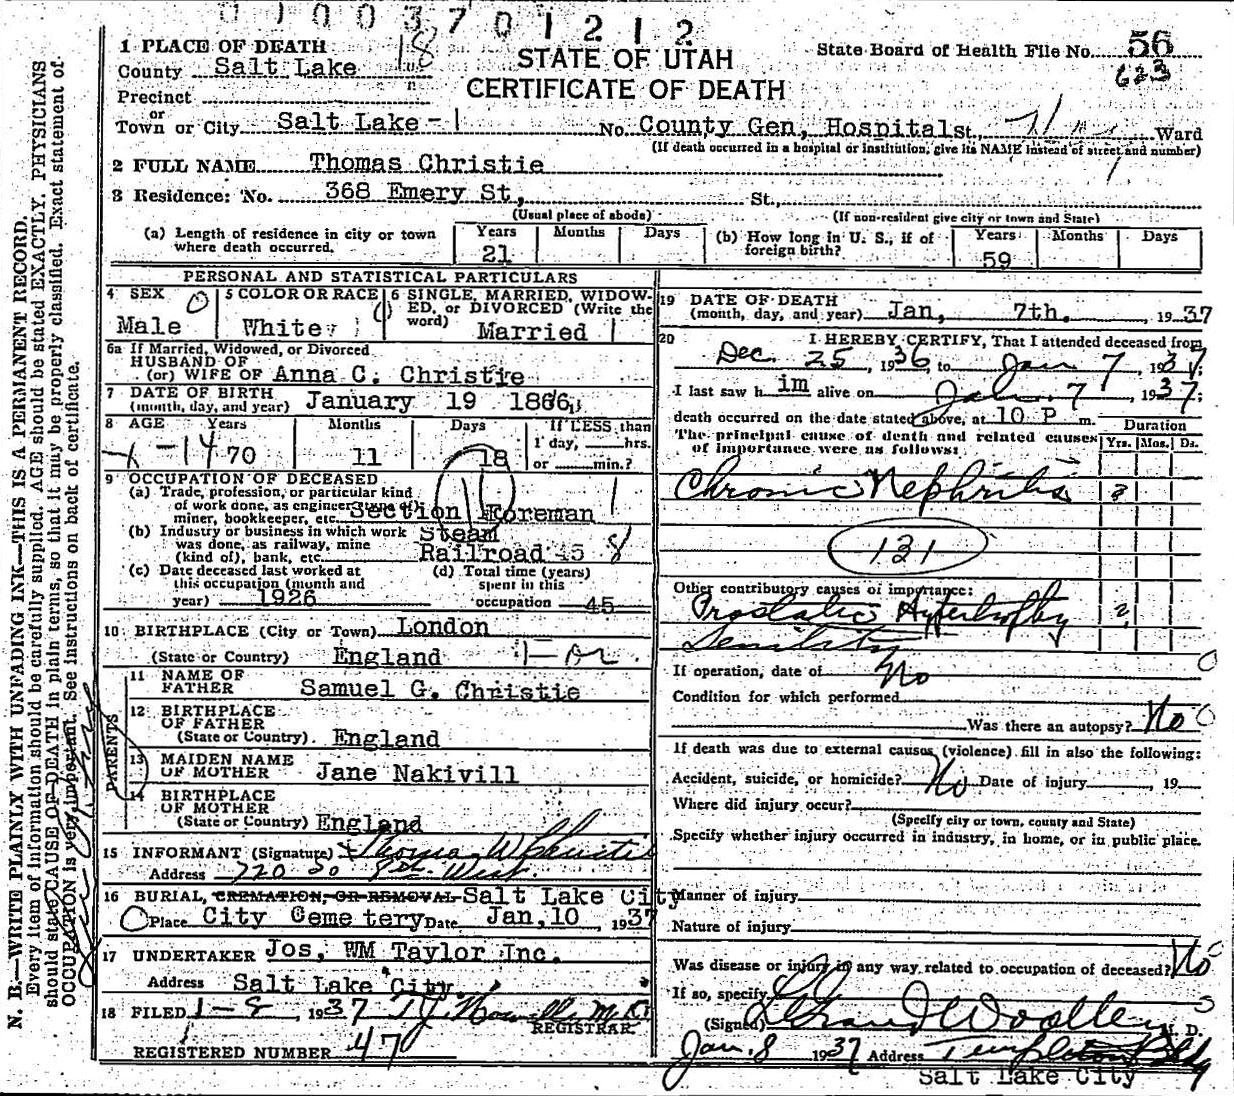 0 1 0 0 3 7 0 1 2 1 2
1 PLACE OF DEATH
County Salt Lake 18
Precinct
or
Town or City Salt Lake - 1
STATE OF UTAH
CERTIFICATE OF DEATH
State Board of Health File No. 56
623
No. County Gen, Hospital St., Ward
(If death occurred in a hospital or institution, give its NAME instead of street and number)
2 FULL NAME Thomas Christie
3 Residence: No. 368 Emery St, St.,
(Usual place of abode) (If non-resident give city or town and State)
(a) Length of residence in city or town where death occurred. Years 21 Months Days
(b) How long in U. S., if of foreign birth? Years 59 Months Days
PERSONAL AND STATISTICAL PARTICULARS
4 SEX Male
5 COLOR OR RACE White
6 SINGLE, MARRIED, WIDOW-
ED, or DIVORCED (Write the
word) Married
6a If Married, Widowed, or Divorced
HUSBAND OF
(or) WIFE OF Anna C. Christie
7 DATE OF BIRTH
(month, day, and year) January 19 1866
8 AGE Years 70 Months 11 Days 18
If LESS than
1 day, hrs.
or min.?
9 OCCUPATION OF DECEASED
(a) Trade, profession, or particular kind
of work done, as engineer, type of
miner, bookkeeper, etc. Section Foreman
(b) Industry or business in which work
was done, as railway, mine
(kind of), bank, etc. Steam
Railroad 45 8
(c) Date deceased last worked at
this occupation (month and
year) 1926
(d) Total time (years)
spent in this
occupation 45
10 BIRTHPLACE (City or Town) London
(State or Country) England
PARENTS
11 NAME OF
FATHER Samuel G. Christie
12 BIRTHPLACE
OF FATHER
(State or Country). England
13 MAIDEN NAME
OF MOTHER Jane Nakivill
14 BIRTHPLACE
OF MOTHER
(State or Country) England
15 INFORMANT (Signature) Thomas W Christie
Address 720 So 8th West
16 BURIAL, CREMATION, OR REMOVAL Salt Lake City
Place City Cemetery Date Jan, 10, 1937
17 UNDERTAKER Jos, WM Taylor Inc.
Address Salt Lake City.
18 FILED 1-8, 1937 M.D.
REGISTRAR
REGISTERED NUMBER 47
19 DATE OF DEATH
(month, day, and year) Jan, 7th. , 1937
20 I HEREBY CERTIFY, That I attended deceased from
Dec. 25, 1936, to Jan 7, 1937;
I last saw h im alive on Jan. 7, 1937;
death occurred on the date stated above, at 10 P m.
The principal cause of death and related causes
of importance were as follows:
Duration
Yrs. Mos. Ds.
Chronic Nephritis ?
131
Other contributory causes of importance:
Prostatic Hypertrophy ?
Senility
If operation, date of No
Condition for which performed
Was there an autopsy? No
If death was due to external causes (violence) fill in also the following:
Accident, suicide, or homicide? No Date of injury , 19
Where did injury occur?
(Specify city or town, county and State)
Specify whether injury occurred in industry, in home, or in public place.
Manner of injury
Nature of injury
Was disease or injury in any way related to occupation of deceased? No
If so, specify
(Signed) Woolley M. D.
Jan. 8 1937 Address Templeton Bldg
Salt Lake City
N. B.—WRITE PLAINLY WITH UNFADING INK—THIS IS A PERMANENT RECORD.
Every item of information should be carefully supplied. AGE should be stated EXACTLY. PHYSICIANS
should state CAUSE OF DEATH in plain terms, so that it may be properly classified. Exact statement of
OCCUPATION is very important. See instructions on back of certificate.